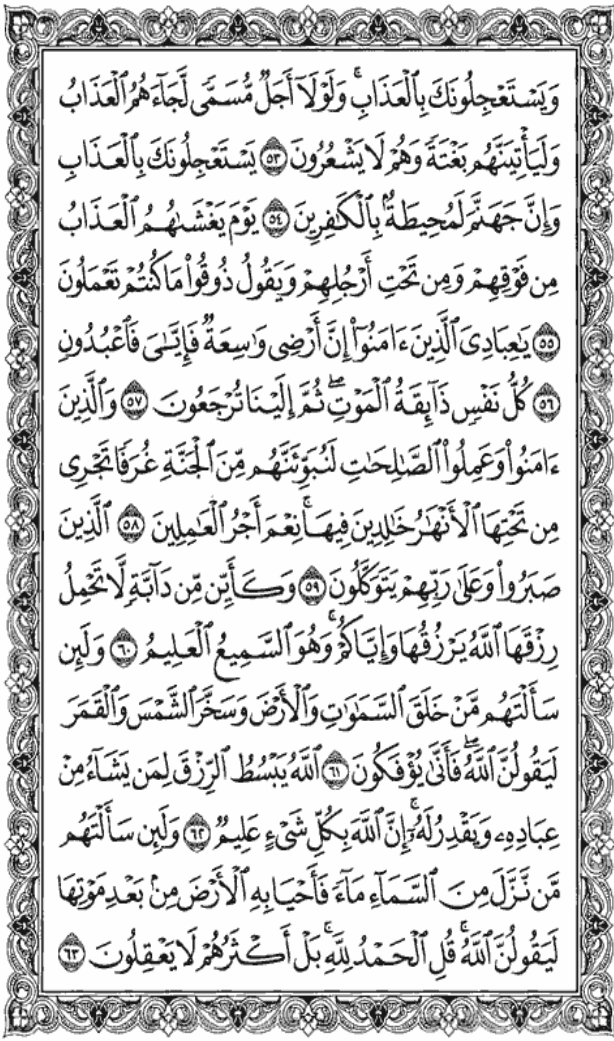 وَيَسْتَعْجِلُونَكَ بِالْعَذَابِ ۚ وَلَوْلَآ أَجَلٌ مُّسَمًّى لَّجَآءَهُمُ الْعَذَابُ
وَلَيَأْتِيَنَّهُم بَغْتَةً وَهُمْ لَا يَشْعُرُونَ ٥٣ يَسْتَعْجِلُونَكَ بِالْعَذَابِ
وَإِنَّ جَهَنَّمَ لَمُحِيطَةٌۢ بِالْكَٰفِرِينَ ٥٤ يَوْمَ يَغْشَىٰهُمُ الْعَذَابُ
مِن فَوْقِهِمْ وَمِن تَحْتِ أَرْجُلِهِمْ وَيَقُولُ ذُوقُوا۟ مَا كُنتُمْ تَعْمَلُونَ
٥٥ يَٰعِبَادِىَ الَّذِينَ ءَامَنُوٓا۟ إِنَّ أَرْضِى وَٰسِعَةٌ فَإِيَّٰىَ فَاعْبُدُونِ
٥٦ كُلُّ نَفْسٍ ذَآئِقَةُ الْمَوْتِ ۖ ثُمَّ إِلَيْنَا تُرْجَعُونَ ٥٧ وَالَّذِينَ
ءَامَنُوا۟ وَعَمِلُوا۟ الصَّٰلِحَٰتِ لَنُبَوِّئَنَّهُم مِّنَ الْجَنَّةِ غُرَفًا تَجْرِى
مِن تَحْتِهَا الْأَنْهَٰرُ خَٰلِدِينَ فِيهَا ۚ نِعْمَ أَجْرُ الْعَٰمِلِينَ ٥٨ الَّذِينَ
صَبَرُوا۟ وَعَلَىٰ رَبِّهِمْ يَتَوَكَّلُونَ ٥٩ وَكَأَيِّن مِّن دَآبَّةٍ لَّا تَحْمِلُ
رِزْقَهَا اللَّهُ يَرْزُقُهَا وَإِيَّاكُمْ ۚ وَهُوَ السَّمِيعُ الْعَلِيمُ ٦٠ وَلَئِن
سَأَلْتَهُم مَّنْ خَلَقَ السَّمَٰوَٰتِ وَالْأَرْضَ وَسَخَّرَ الشَّمْسَ وَالْقَمَرَ
لَيَقُولُنَّ اللَّهُ ۖ فَأَنَّىٰ يُؤْفَكُونَ ٦١ اللَّهُ يَبْسُطُ الرِّزْقَ لِمَن يَشَآءُ مِنْ
عِبَادِهِۦ وَيَقْدِرُ لَهُۥٓ ۚ إِنَّ اللَّهَ بِكُلِّ شَىْءٍ عَلِيمٌ ٦٢ وَلَئِن سَأَلْتَهُم
مَّن نَّزَّلَ مِنَ السَّمَآءِ مَآءً فَأَحْيَا بِهِ الْأَرْضَ مِنۢ بَعْدِ مَوْتِهَا
لَيَقُولُنَّ اللَّهُ ۚ قُلِ الْحَمْدُ لِلَّهِ ۚ بَلْ أَكْثَرُهُمْ لَا يَعْقِلُونَ ٦٣